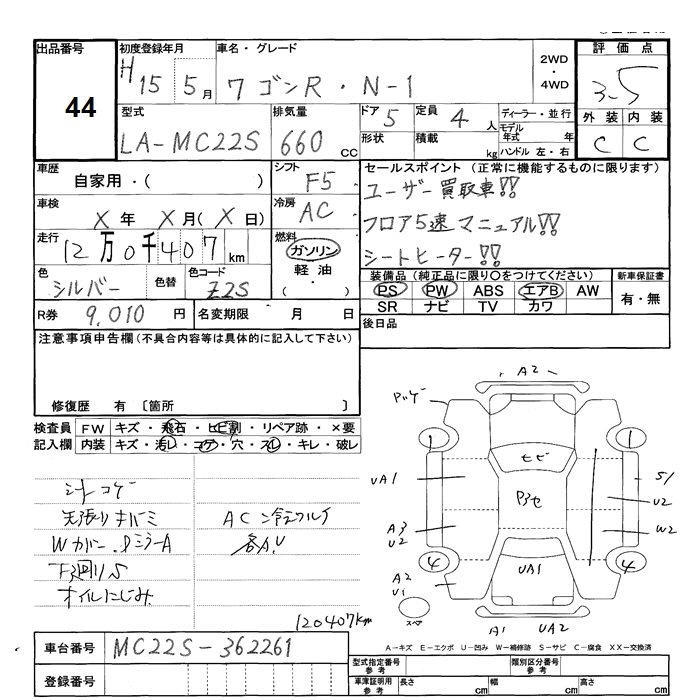 出品番号
44
初度登録年月
H 15 5月
車名・グレード
ワゴンR・N-1
2WD
・
4WD
評価点
3.5
型式
LA-MC22S
排気量
660 cc
ドア 5
定員 4 人
形状
積載 kg
ディーラー・並行
モデル年式 年
ハンドル 左・右
外装 内装
C C
車歴
自家用・( )
シフト
F5
セールスポイント (正常に機能するものに限ります)
ユーザー買取車!!
フロア5速マニュアル!!
シートヒーター!!
車検
X年 X月(X日)
冷房
AC
走行
12万0千407 km
燃料
ガソリン
軽油
( )
色
シルバー
色替
色コード
Z2S
装備品 (純正品に限り〇をつけてください)
PS PW ABS エアB AW
SR ナビ TV カワ
新車保証書
有・無
R券 9,010 円
名変期限 月 日
後日品
注意事項申告欄(不具合内容等は具体的に記入して下さい)
修復歴 有 〔箇所 〕
検査員記入欄
FW キズ・飛石・ヒビ割・リペア跡・×要
内装 キズ・汚レ・コゲ・穴・スレ・キレ・破レ
シートコゲ
天張りキバミ
Wカバー、
オイルにじみ
AC冷えワルイ
各A.U
120407km
A2
1
1
ヒビ
UA1
P3セ
S1
U2
A3
U2
W2
4
4
A2
U1
UA1
スペア
A1 UA2
A-キズ E-エクボ U-凹み W-補修跡 S-サビ C-腐食 XX-交換済
車台番号
MC22S-362261
登録番号
型式指定番号
参考
類別区分番号
参考
車庫証明用
参考
長さ cm
幅 cm
高さ cm